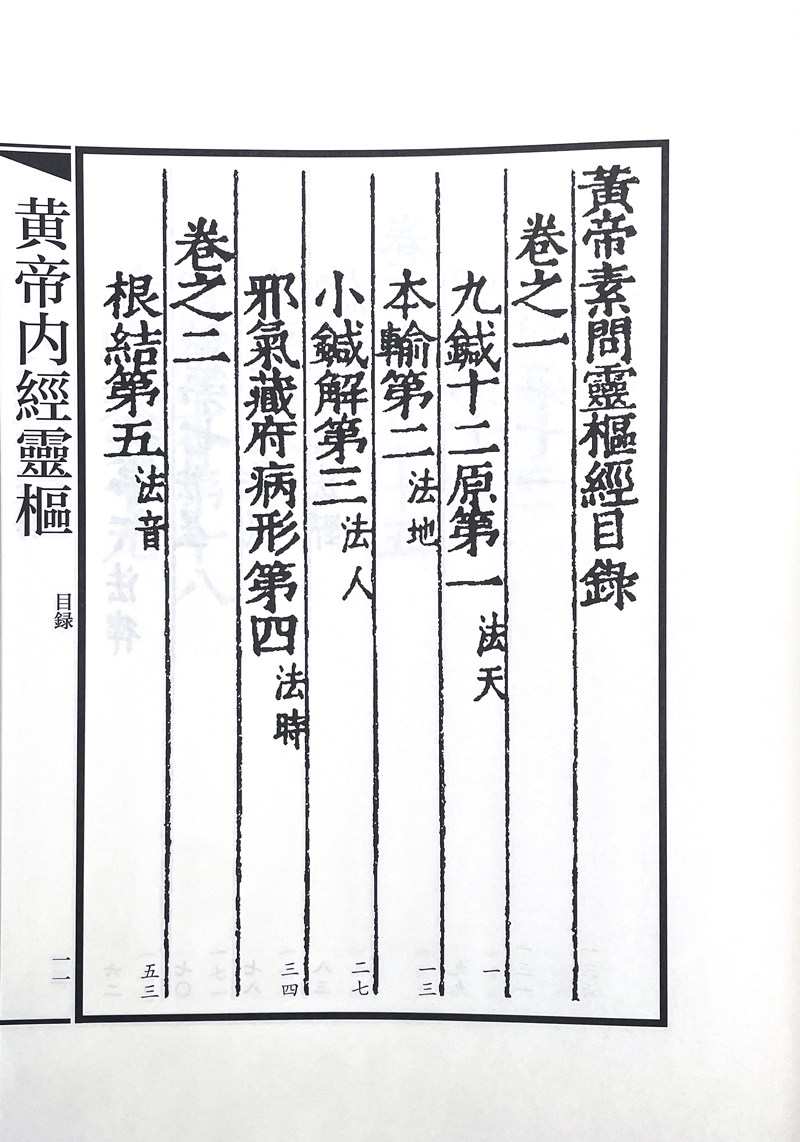 黃帝素問靈樞經目錄
卷之一
九鍼十二原第一 法天 一
本輸第二 法地 一三
小鍼解第三 法人 二七
邪氣藏府病形第四 法時 三四
卷之二
根結第五 法音 五三
黄帝内經靈樞 目録